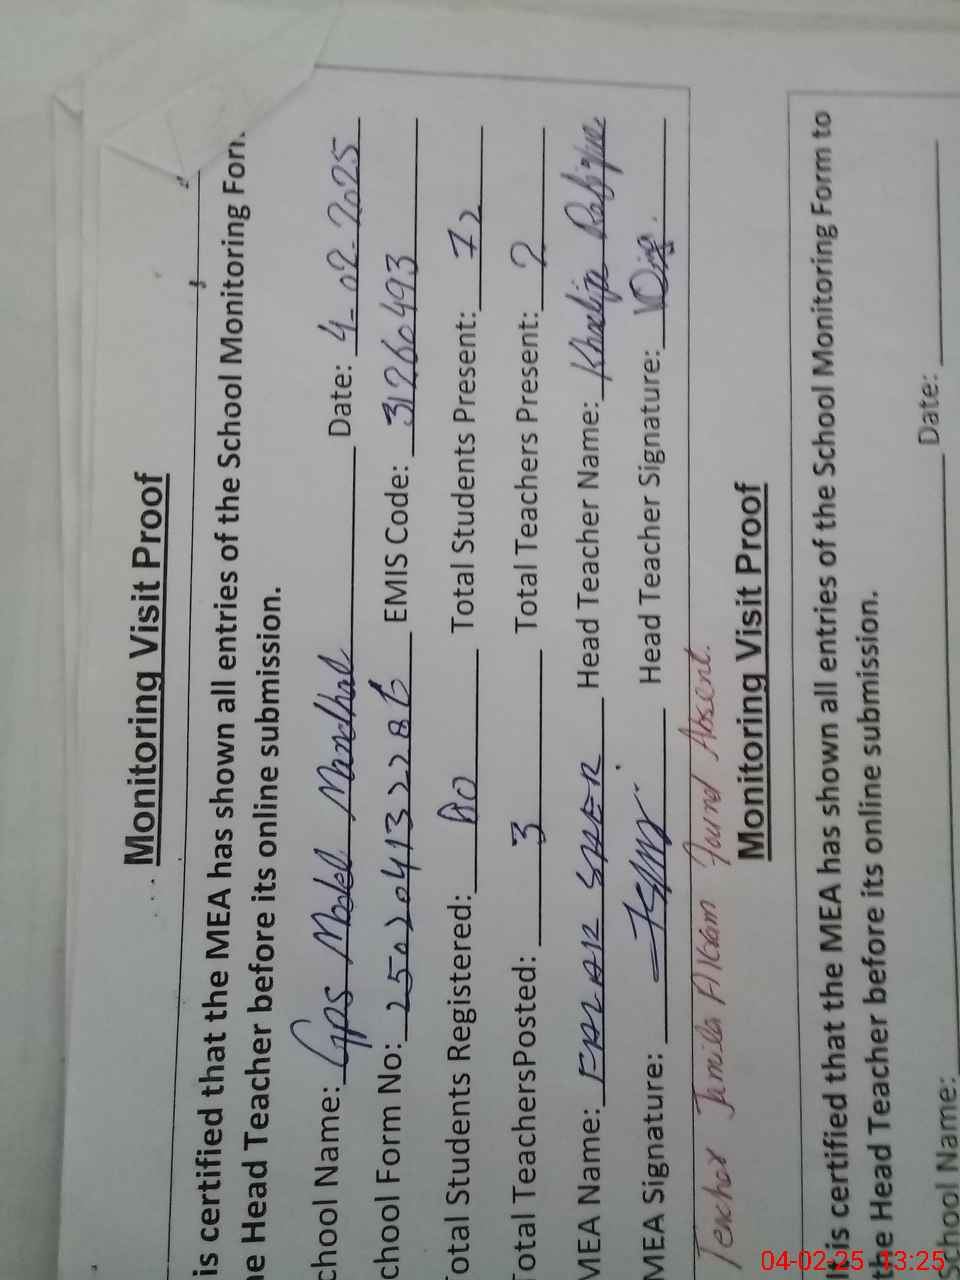 Monitoring Visit Proof
is certified that the MEA has shown all entries of the School Monitoring Form
he Head Teacher before its online submission.
chool Name: Gps Model Mandhal Date: 4-02-2025
chool Form No: EMIS Code: 31260493
Total Students Registered: 80 Total Students Present: 72
Total TeachersPosted: 3 Total Teachers Present: 2
MEA Name: Head Teacher Name: Khadija
MEA Signature: Head Teacher Signature:
Teacher Jamila Found Absent.
Monitoring Visit Proof
It is certified that the MEA has shown all entries of the School Monitoring Form to
the Head Teacher before its online submission.
School Name: Date:
04-02-25 13:25